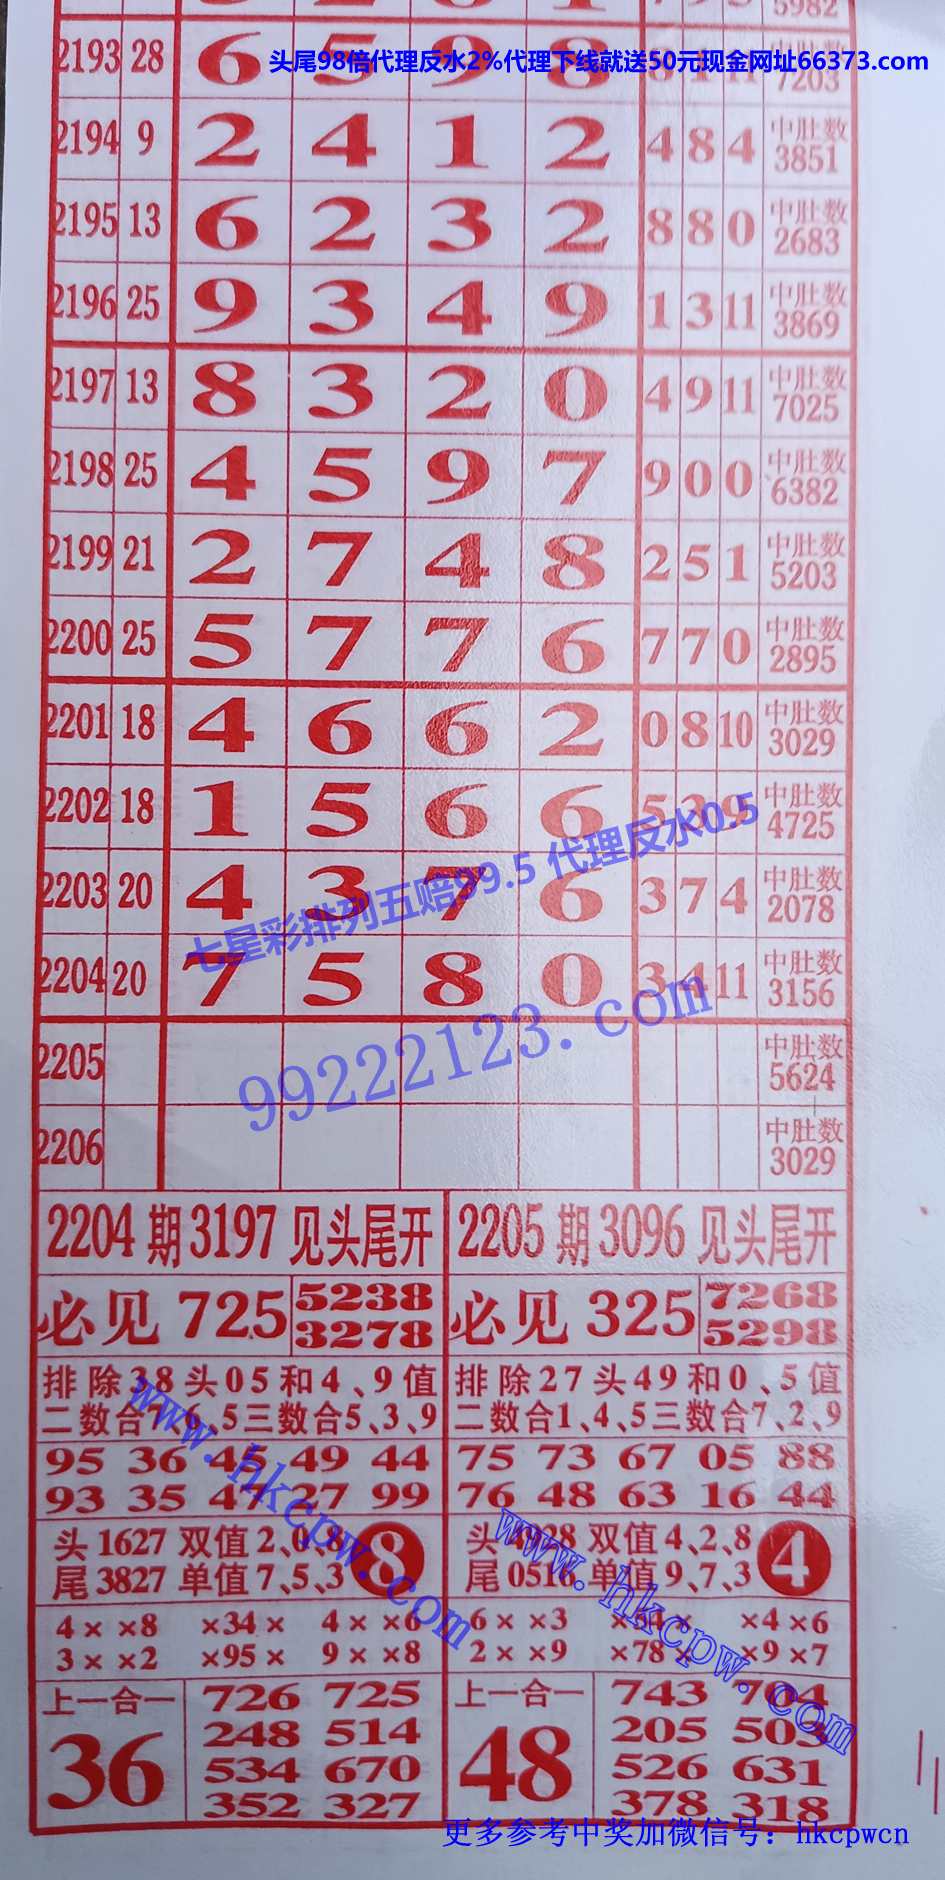 5982
头尾98倍代理反水2%代理下线就送50元现金网址66373.com
2193 28 6 5 9 8 7203
2194 9 2 4 1 2 4 8 4 中肚数 3851
2195 13 6 2 3 2 8 8 0 中肚数 2683
2196 25 9 3 4 9 1 3 11 中肚数 3869
2197 13 8 3 2 0 4 9 11 中肚数 7025
2198 25 4 5 9 7 9 0 0 中肚数 6382
2199 21 2 7 4 8 2 5 1 中肚数 5203
2200 25 5 7 7 6 7 7 0 中肚数 2895
2201 18 4 6 6 2 0 8 10 中肚数 3029
2202 18 1 5 6 6 5 3 9 中肚数 4725
2203 20 4 3 7 6 3 7 4 中肚数 2078
七星彩排列五赔99.5 代理反水0.5
2204 20 7 5 8 0 3 4 11 中肚数 3156
99222123.com
2205 中肚数 5624
2206 中肚数 3029
2204期3197见头尾开
必见 725 5238
3278
排除38头05和4、9值
二数合7、6、5三数合5、3、9
95 36 45 49 44
93 35 47 27 99
头1627 双值2、0、8
尾3827 单值7、5、3
8
4××8 ×34× 4××6
3××2 ×95× 9××8
上一合一
36
726 725
248 514
534 670
352 327
www.hkcpw.com
2205期3096见头尾开
必见 325 7268
5298
排除27头49和0、5值
二数合1、4、5三数合7、2、9
75 73 67 05 88
76 48 63 16 44
头4928 双值4、2、8
尾0516 单值9、7、3
4
6××3 ×4×6
2××9 ×78× ×9×7
上一合一
48
743 704
205 503
526 631
378 318
www.hkcpw.com
更多参考中奖加微信号：hkcpwcn